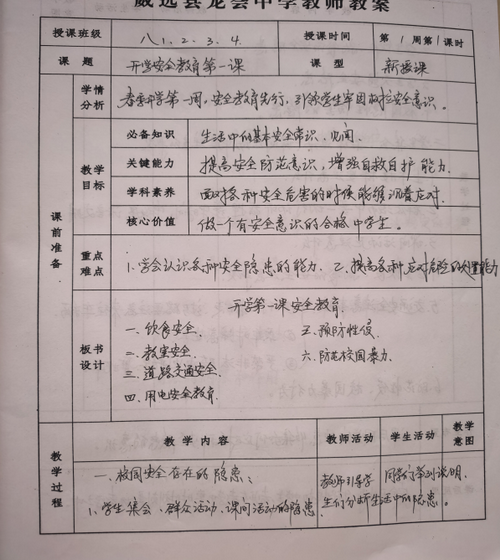 威远县龙会中学教师教案
授课班级 八1.2.3.4 授课时间 第1周第1课时
课题 开学安全教育第一课 课型 新授课
学情分析 春季开学第一周,安全教育先行,引领学生牢固树立安全意识。
课前准备
教学目标
必备知识 生活中的基本安全常识、见闻
关键能力 提高安全防范意识,增强自救自护能力.
学科素养 面对各种安全危害的时候能够沉着应对.
核心价值 做一个有安全意识的合格中学生。
重点难点 1.学会认识各种安全隐患的能力. 2.提高各种应对危险的处置能力
板书设计
开学第一课安全教育.
一、饮食安全. 五、预防性侵
二、教室安全. 六、防范校园暴力.
三、道路交通安全
四.用电安全教育.
教学过程
教学内容 教师活动 学生活动 教学意图
一、校园安全存在的隐患: 教师引导学 同学们举列说明.
1.学生集会、群众活动、课间活动的隐患 生们分析生活中的隐患.